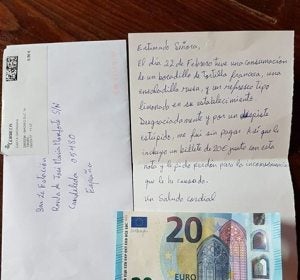 Estimado Señora,
El día 22 de Febrero tuve una consumación
de un bocadillo de Tortilla francesa, una
ensaladilla rusa, y un refresco tipo
limonada en su establecimiento.
Desgraciadamente y por un despiste
estúpido, me fui sin pagar. Así que le
incluyo un billete de 20€ junto con esta
nota y le pido perdón para la inconveniencia
que le he causado.
Un Saludo cordial
Bar La Estación
Candeleda 05480
España
20